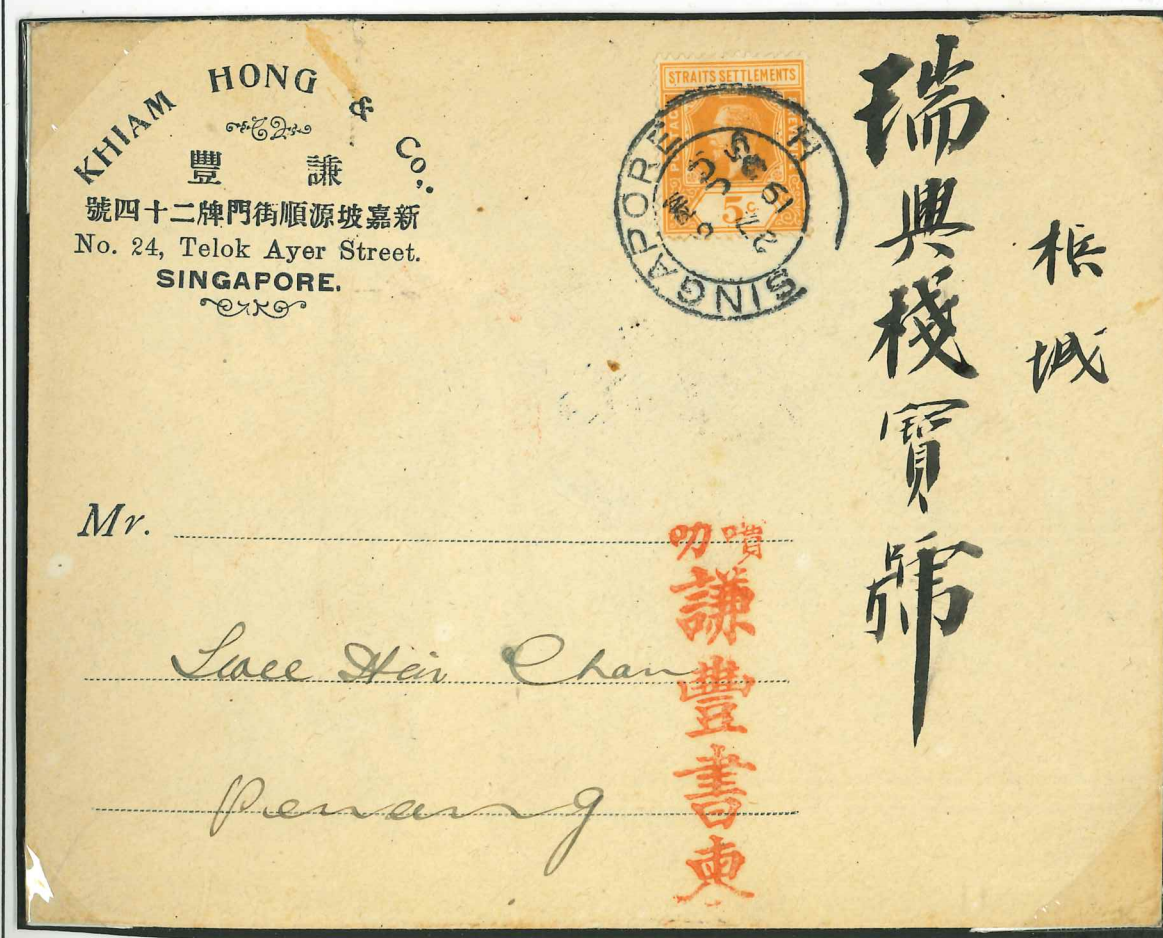 KHIAM HONG & Co.,
謙豐
新嘉坡源順街門牌二十四號
No. 24, Telok Ayer Street.
SINGAPORE.
STRAITS SETTLEMENTS
5c
SINGAPORE
梹城
瑞興棧寶號
Mr.
Swee Hin Chan
Penang
叻
謙豐書柬